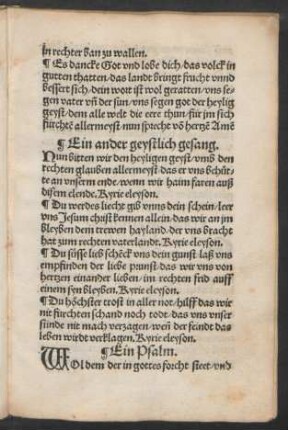 in rechter ban zu wallen.
¶ Es dancke Got vnd lobe dich/das volck in
gutten thatten/das landt bringt frucht vnnd
bessert sich/dein wort ist wol geratten/vns se-
gen vater vn̄ der sun/vns segen got der heylig
geyst/dem alle welt die eere thun/für jm sich
fürchtē allermeyst/nun sprecht vō hertzē Amē
¶ Ein ander geystlich gesang.
Nun bitten wir den heyligen geyst/vmb den
rechten glauben allermeyst/das er vns behüt-
te an vnserm ende/wenn wir haim faren auß
disem elende. Kyrie eleyson.
¶ Du werdes liecht gib vnns dein schein/leer
vns Jesum christ kennen allein/das wir an jm
bleyben dem trewen hayland/der vns bracht
hat zum rechten vaterlandt. Kyrie eleyson.
¶ Du süsse lieb schēck vns dein gunst/laß vns
empfinden der liebe prunst/das wir vns von
hertzen einander lieben/im rechten frid auff
einem syn bleyben. Kyrie eleyson.
¶ Du höchster trost in aller not/hilff das wir
nit fürchten schand noch todt/das vns vnser
sünde nit mach verzagen/wen der feindt das
leben wirdt verklagen. Kyrie eleyson.
¶ Ein Psalm.
WOl dem der in gottes forcht steet/vnd